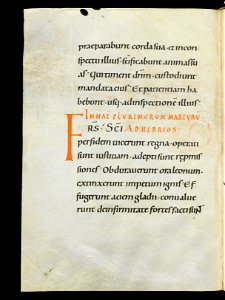 praeparabunt corda sua et incon
spectu illius scificabunt animas su
as Qui timent dnm custodiunt
mandata eius Et patientiam ha
bebunt usq; ad inspectione illius
IN NAT PLURIMORUM MARTYRU
AD HEBREOS
FRS SCI
per fidem uicerunt regna operati
sunt iustitiam adepti sunt repmis
siones Obdurauerunt ora leonum
extinxerunt impetum ignis Ef
fugerunt aciem gladii conualue
runt de infirmitate fortes facti sunt